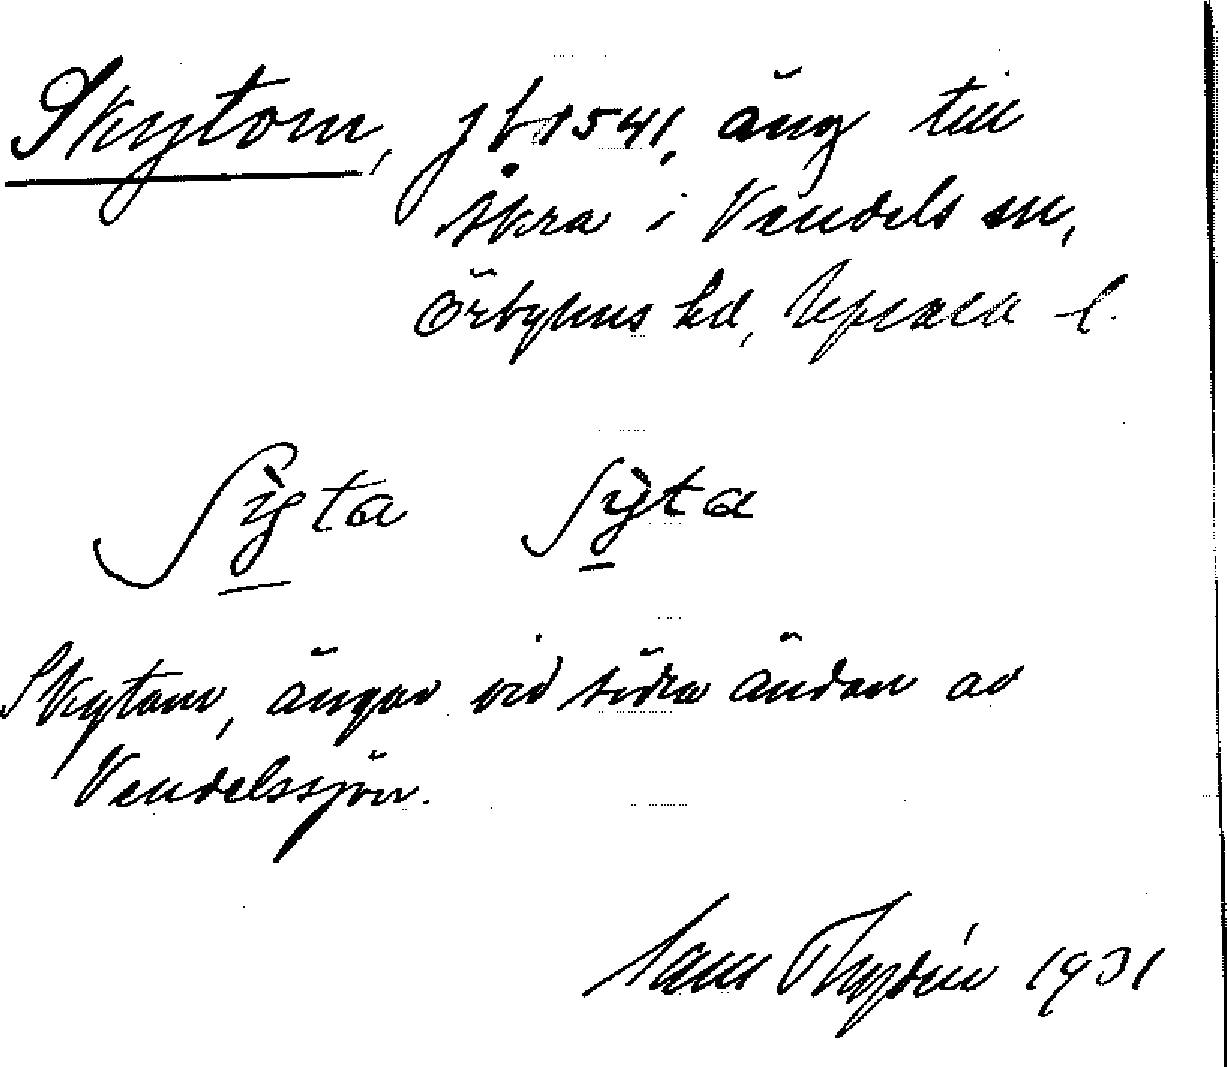 Skytom, jb 1541, äng till
Åkra i Vendels sn,
Örbyhus hd, Upsala l.
ʃỳ̱ta ʃỳ̱ta
Skytom, ängar vid södra ändan av
Vendelssjön.
1931